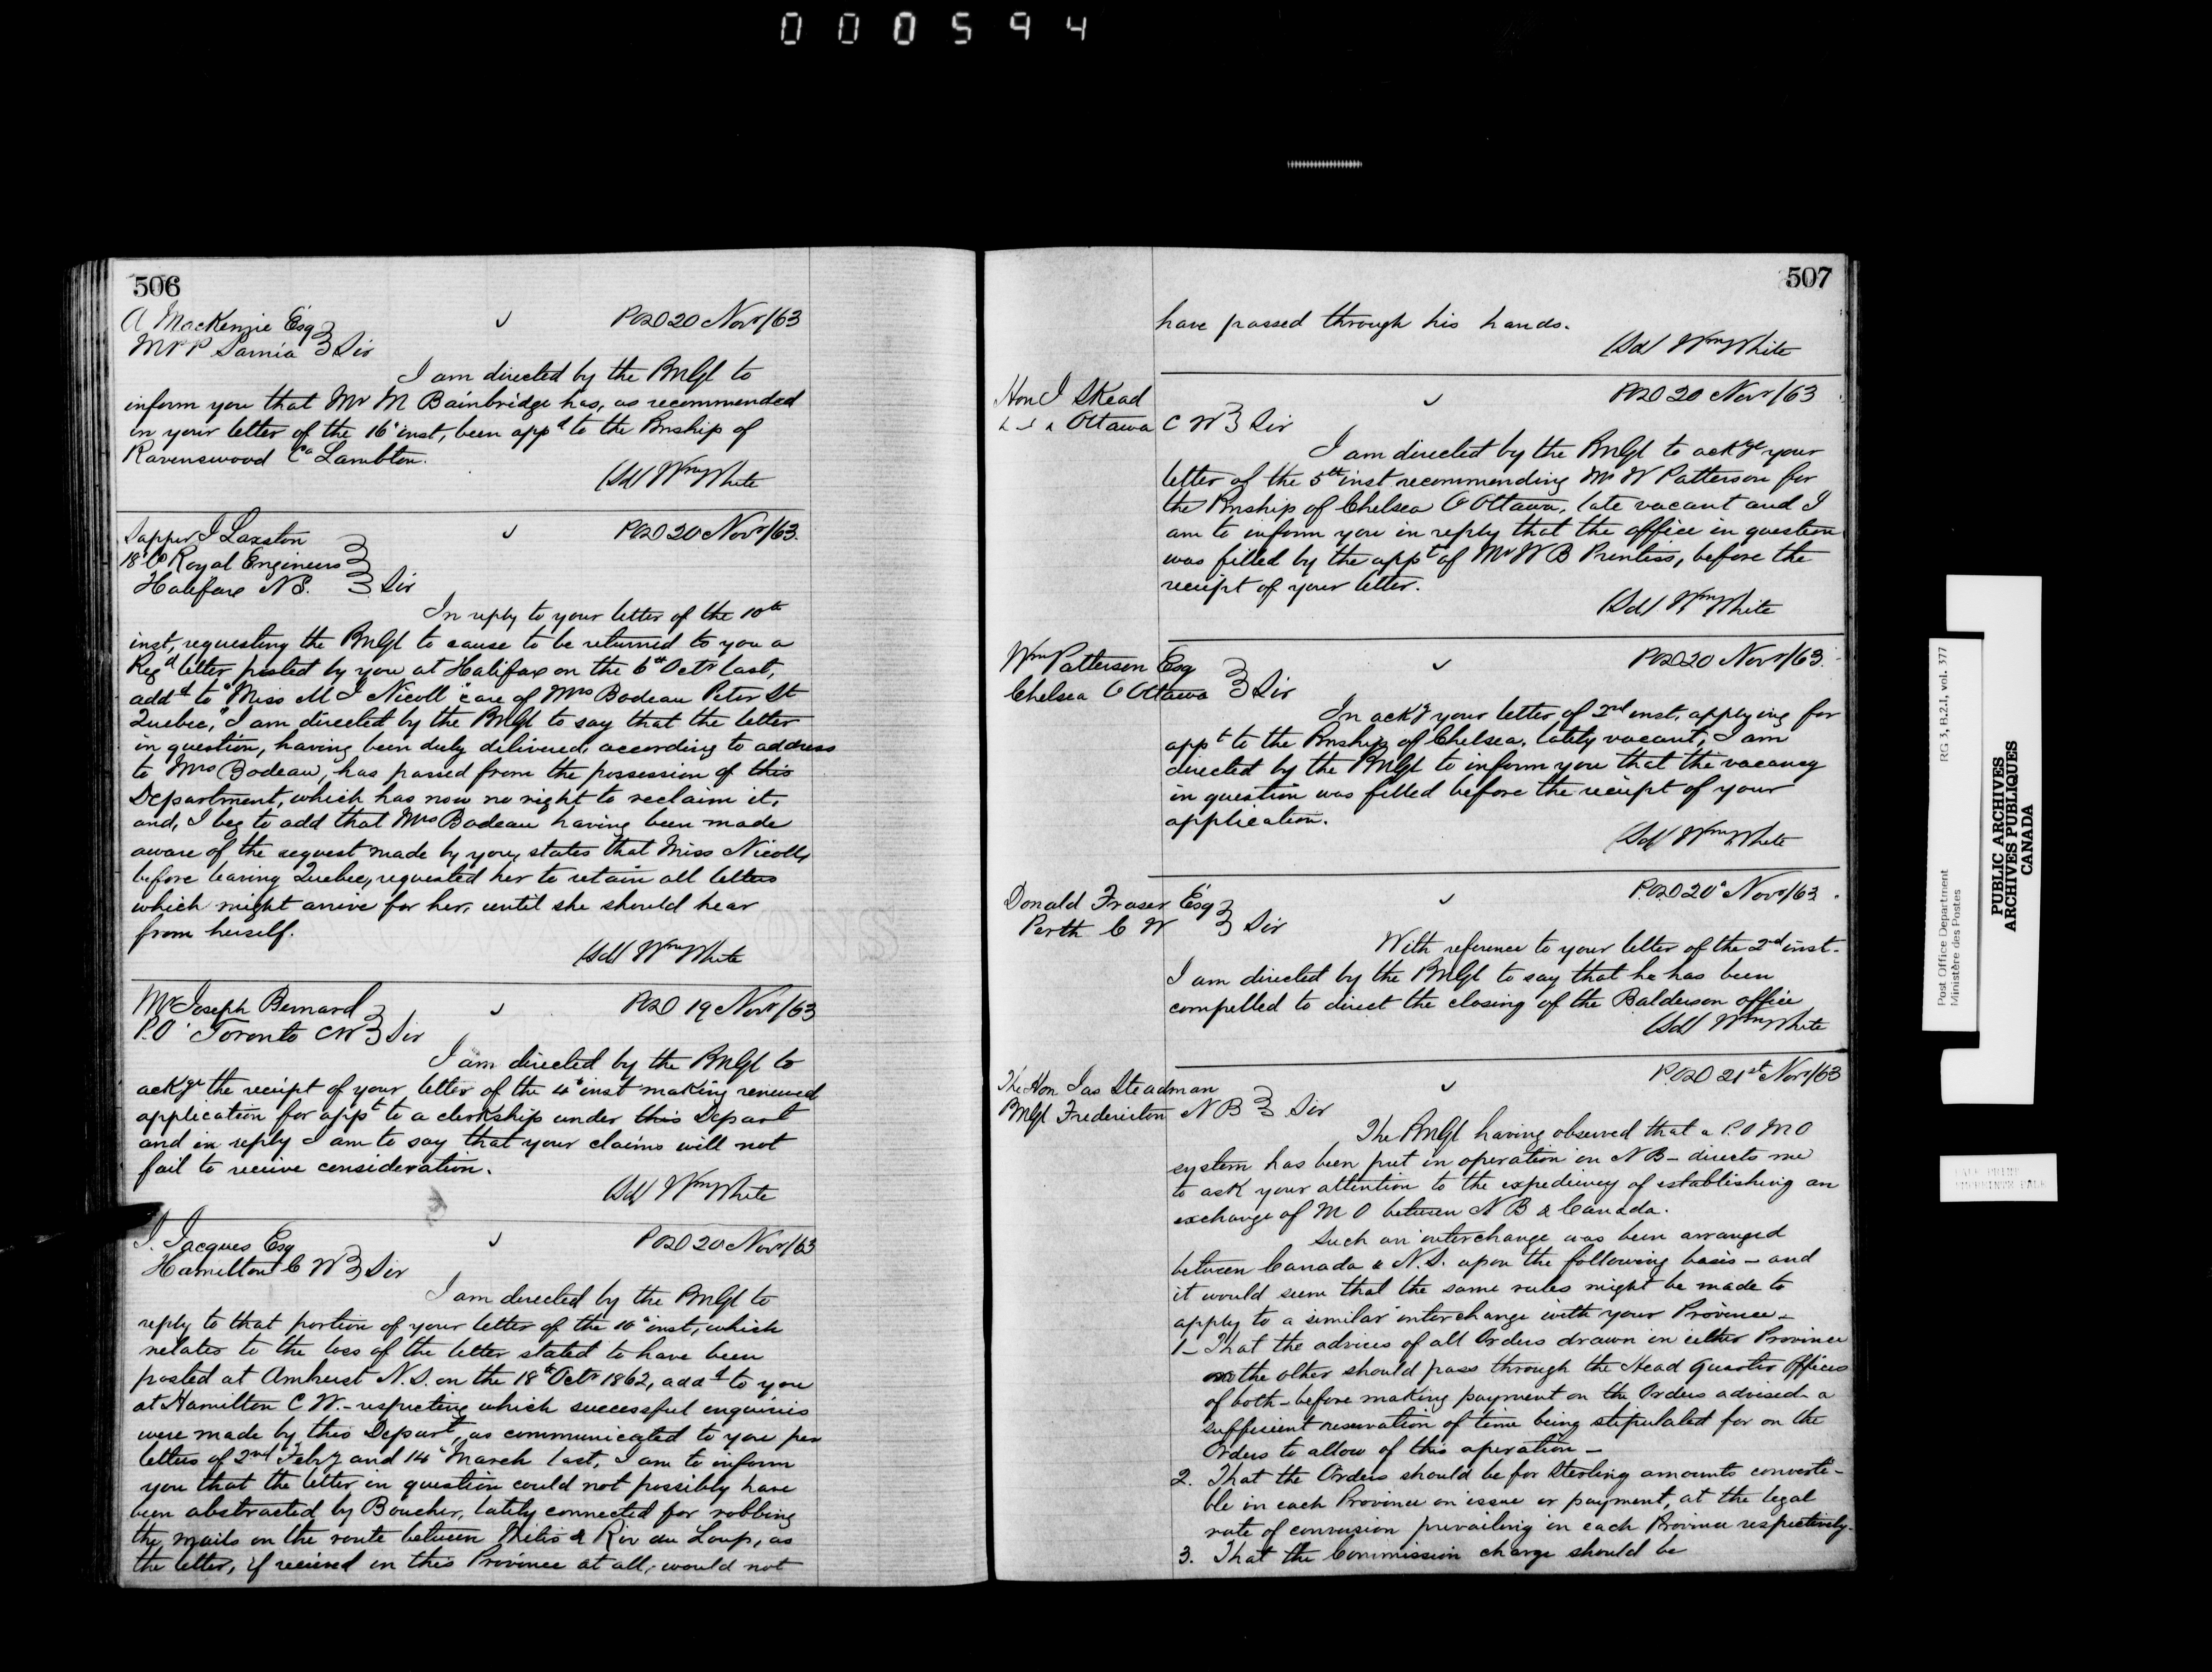 000594
506
A MacKenzie Esq
MPP Sarnia } Sir
POD 20 Novr/63
I am directed by the PMGl to
inform you that Mr M Bainbridge has, as recommended
in your letter of the 16" inst, been appd to the Pmship of
Ravenswood Co Lambton.
(Sd) Wm White
Sapper J Laxston
18" Co Royal Engineers
Halifax N S. } Sir
POD 20 Novr/63.
In reply to your letter of the 10th
inst, requesting the PMGl to cause to be returned to you a
Regd letter posted by you at Halifax on the 6th Octr last,
addd to "Miss M J Nicoll care of Mrs Bodeau Peter St
Quebec," I am directed by the PMGl to say that the letter
in question, having been duly delivered, according to address
to Mrs Bodeau, has passed from the possession of this
Department, which has now no right to reclaim it,
and, I beg to add that Mrs Bodeau having been made
aware of the request made by you, states that Miss Nicolls
before leaving Quebec, requested her to retain all letters
which might arrive for her, until she should hear
from herself.
(Sd) Wm White
Mr Joseph Bernard
P.O. Toronto CW } Sir
POD 19 Novr/63
I am directed by the PMGl to
ackge the receipt of your letter of the 4" inst making renewed
application for appt to a clerkship under this Depart
and in reply I am to say that your claims will not
fail to receive consideration.
(Sd) Wm White
J. Jacques Esq
Hamilton C W } Sir
POD 20 Novr/63
I am directed by the PMGl to
reply to that portion of your letter of the 10" inst, which
relates to the loss of the letter stated to have been
posted at Amherst N.S. on the 18th Octr 1862, addd to you
at Hamilton C W. - respecting which successful enquiries
were made by this Depart, as communicated to you per
letters of 2nd Feby and 14" March last, I am to inform
you that the letter in question could not possibly have
been abstracted by Boucher, lately connected for robbing
the mails on the route between Metis & Riv du Loup, as
the letter, if received in this Province at all, would not
507
have passed through his hands.
(Sd) Wm White
Hon J Skead
Ottawa C W } Sir
POD 20 Novr/63
I am directed by the PMGl to ackge your
letter of the 5th inst recommending Mr W Patterson for
the Pmship of Chelsea O Ottawa, late vacant and I
am to inform you in reply that the office in question
was filled by the appt of Mr W B Prentiss, before the
receipt of your letter.
(Sd) Wm White
Wm Patterson Esq
Chelsea O Ottawa } Sir
POD 20 Novr/63.
In ackg your letter of 2nd inst, applying for
appt to the Pmship of Chelsea, lately vacant, I am
directed by the PMGl to inform you that the vacancy
in question was filled before the receipt of your
application.
(Sd) Wm White
Donald Fraser Esq
Perth C W } Sir
P.OD 20" Novr/63.
With reference to your letter of the 2nd inst.
I am directed by the PMGl to say that he has been
compelled to direct the closing of the Balderson office
(Sd) Wm White
The Hon Jas Steadman
PMGl Fredericton N B } Sir
P.OD 21st Novr/63
The PMGl having observed that a P.O M O
system has been put in operation in N B - directs me
to ask your attention to the expediency of establishing an
exchange of M O between N B & Canada.
Such an interchange was been arranged
between Canada & N.S. upon the following basis - and
it would seem that the same rules might be made to
apply to a similar interchange with your Province -
1- That the advices of all Orders drawn in either Province
on the other should pass through the Head Quarter Offices
of both - before making payment on the Orders advised - a
sufficient reservation of time being stipulated for on the
Orders to allow of this operation -
2. That the Orders should be for Sterling amounts converti-
ble in each Province on issue or payment, at the legal
rate of conversion prevailing in each Province respectively.
3. That the Commission charge should be
Post Office Department
Ministère des Postes
RG 3, B.2.I, vol. 377
PUBLIC ARCHIVES
ARCHIVES PUBLIQUES
CANADA